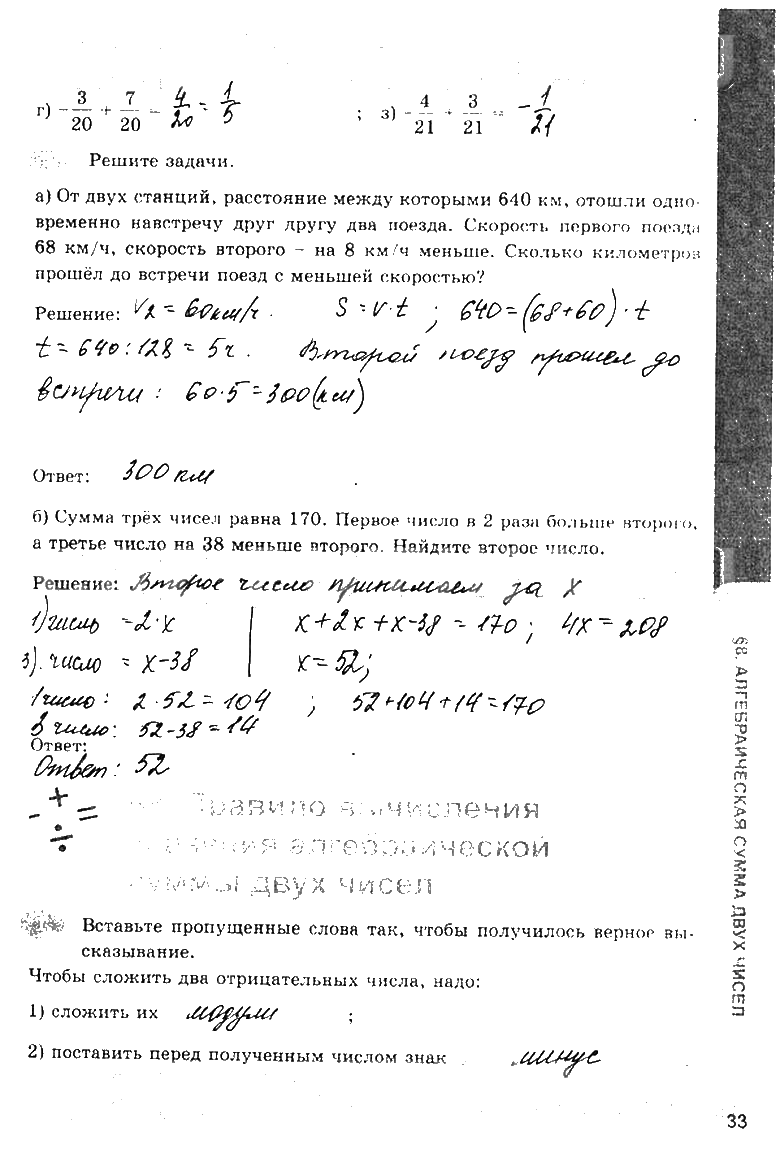 г) -3/20 + 7/20 = 4/20 = 1/5 ; з) -4/21 + 3/21 = -1/21
Решите задачи.
а) От двух станций, расстояние между которыми 640 км, отошли одно-
временно навстречу друг другу два поезда. Скорость первого поезда
68 км/ч, скорость второго – на 8 км/ч меньше. Сколько километров
прошёл до встречи поезд с меньшей скоростью?
Решение: V2 = 60км/ч . S = v·t ; 640=(68+60)·t
t = 640:128 = 5ч . Второй поезд прошел до
встречи : 60·5=300(км)
Ответ: 300 км
б) Сумма трёх чисел равна 170. Первое число в 2 раза больше второго,
а третье число на 38 меньше второго. Найдите второе число.
Решение: Второе число принимаем за X
1)число -2·x | x+2x+x-38 = 170 ; 4x = 208
3). число = x-38 | x=52;
1число : 2·52=104 ; 52+104+14=170
3 число: 52-38=14
Ответ:
Ответ : 52
- + =
÷
Правило вычисления
значения алгебраической
суммы двух чисел
Вставьте пропущенные слова так, чтобы получилось верное вы-
сказывание.
Чтобы сложить два отрицательных числа, надо:
1) сложить их модули ;
2) поставить перед полученным числом знак минус
§8. АЛГЕБРАИЧЕСКАЯ СУММА ДВУХ ЧИСЕЛ
33